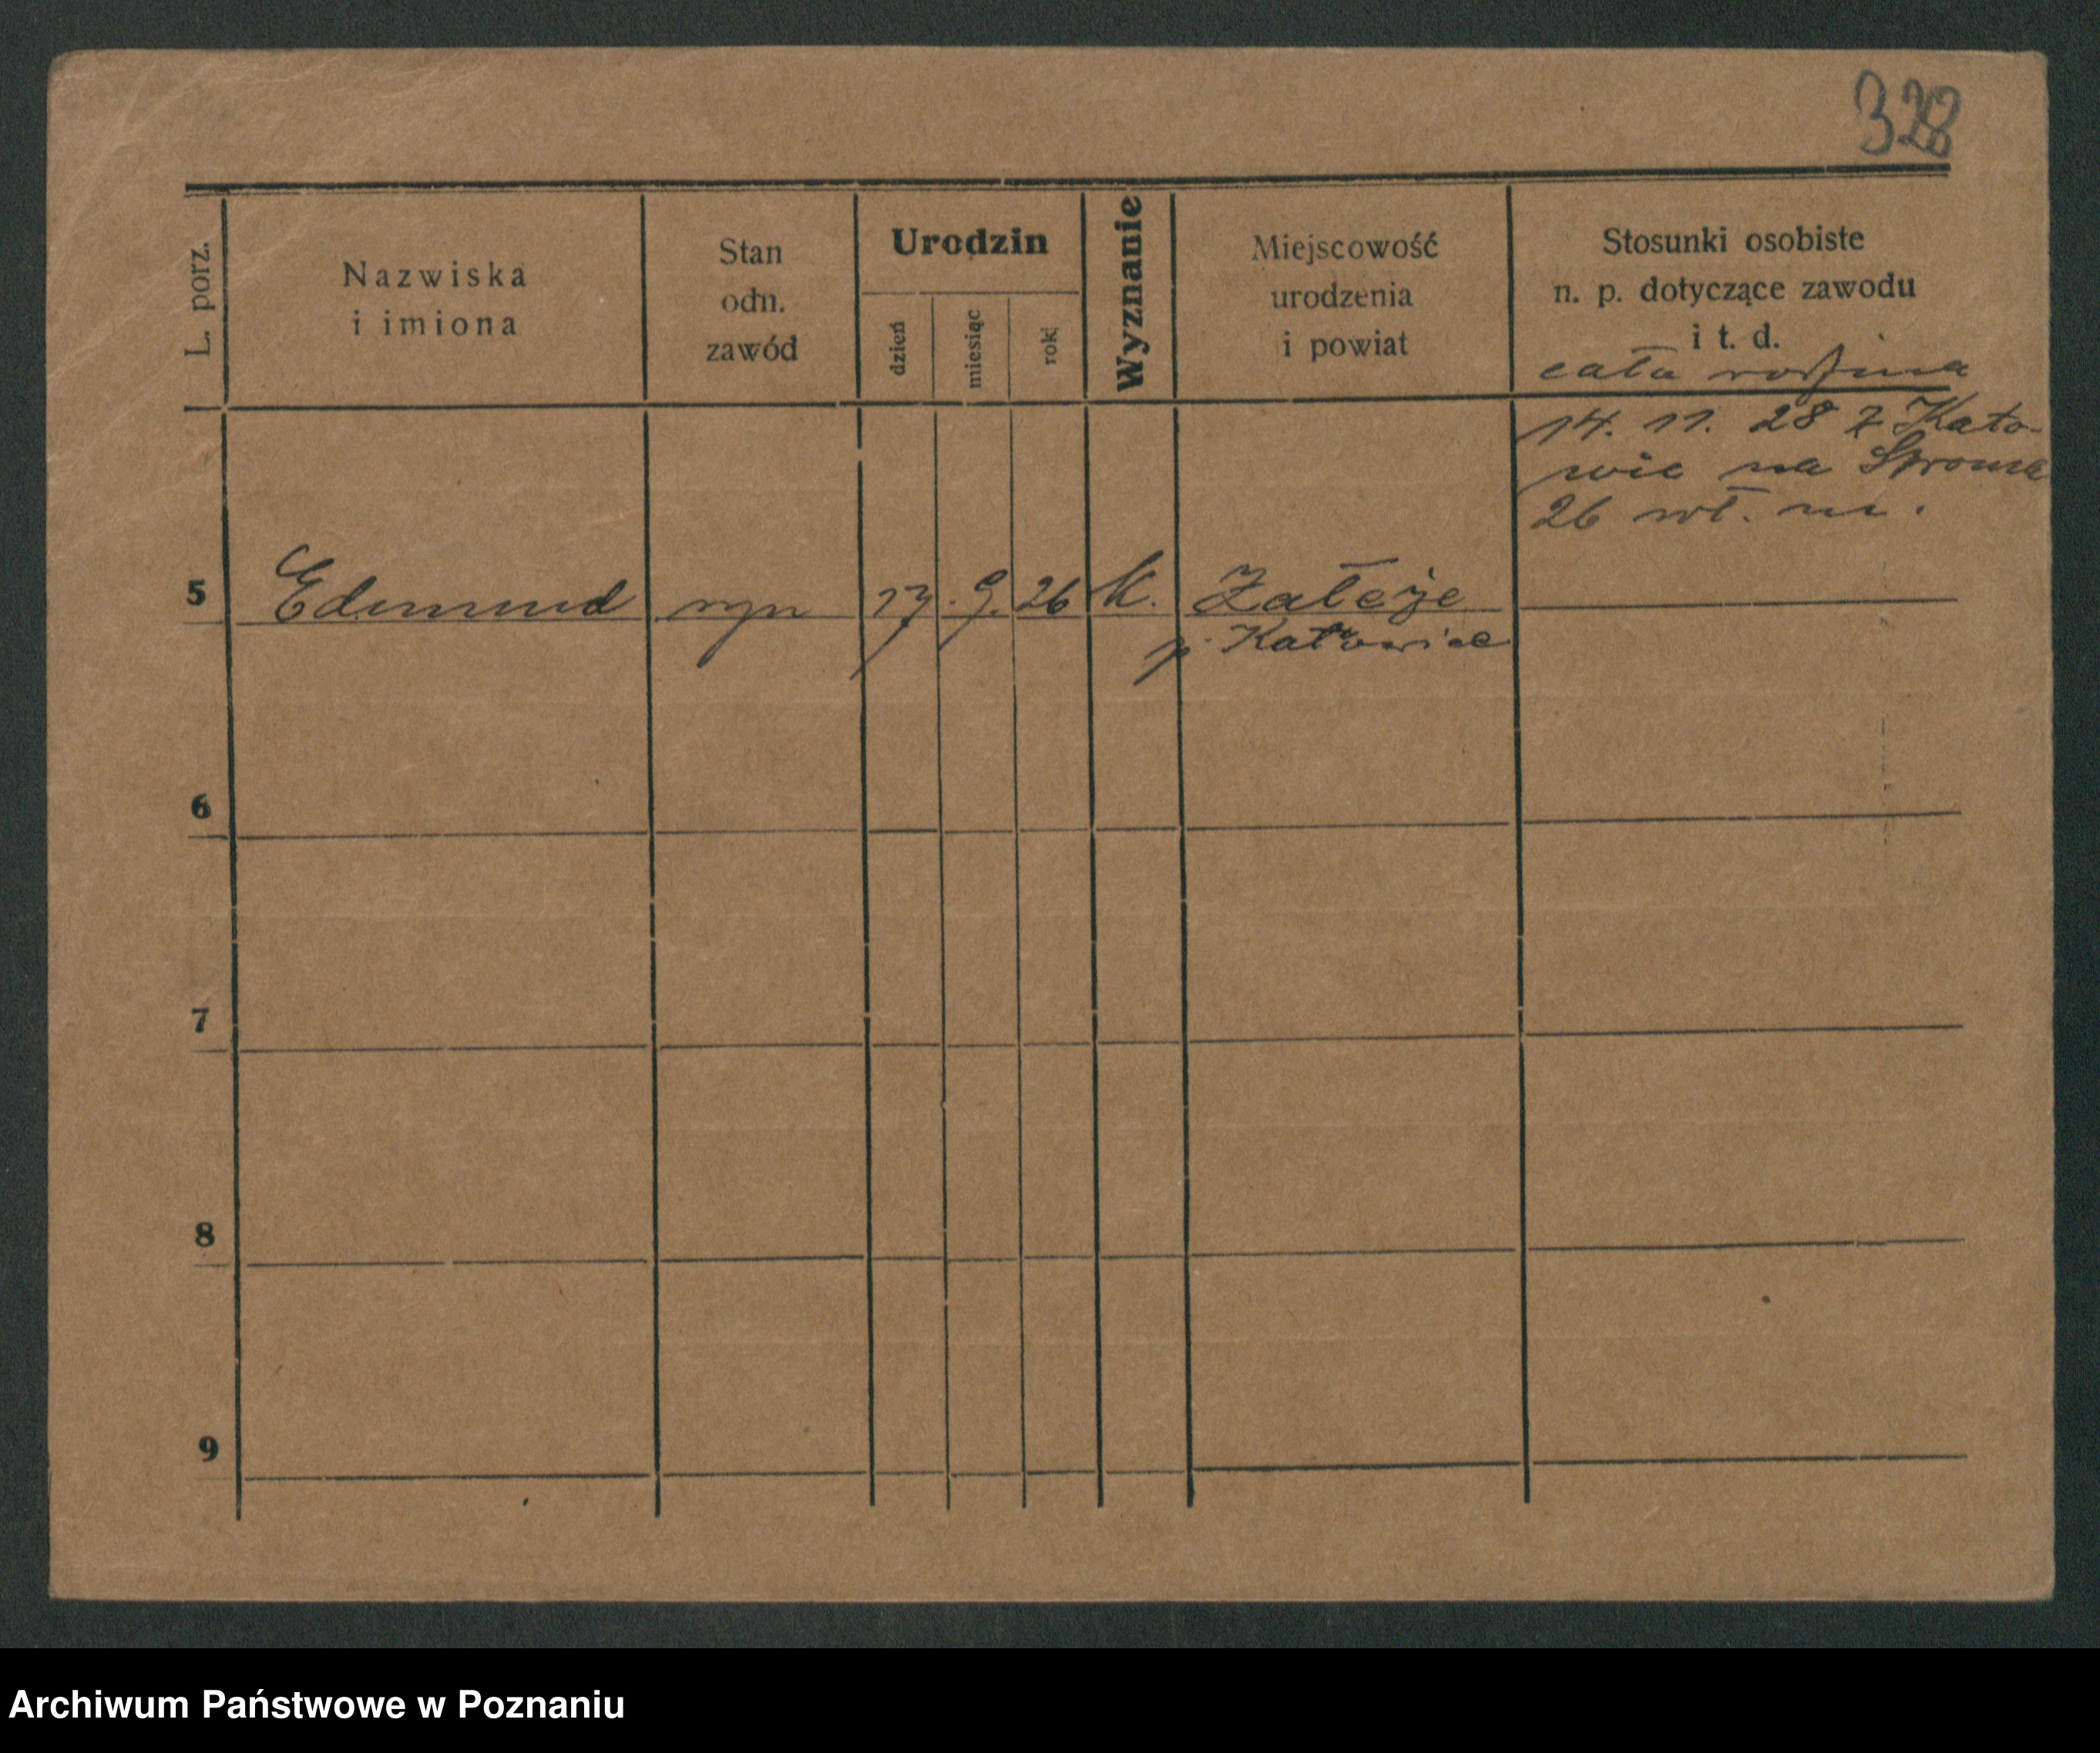 328
L. porz.
Nazwiska
i imiona
Stan
odn.
zawód
Urodzin
dzień
miesiąc
rok
Wyznanie
Miejscowość
urodzenia
i powiat
Stosunki osobiste
n. p. dotyczące zawodu
i t. d.
cała rodzina
14. 11. 28 z Kato-
wic na Stroma
26 wł. m.
5 Edmund syn 17. 9. 26 k. Załęże
p. Katowice
6
7
8
9
Archiwum Państwowe w Poznaniu